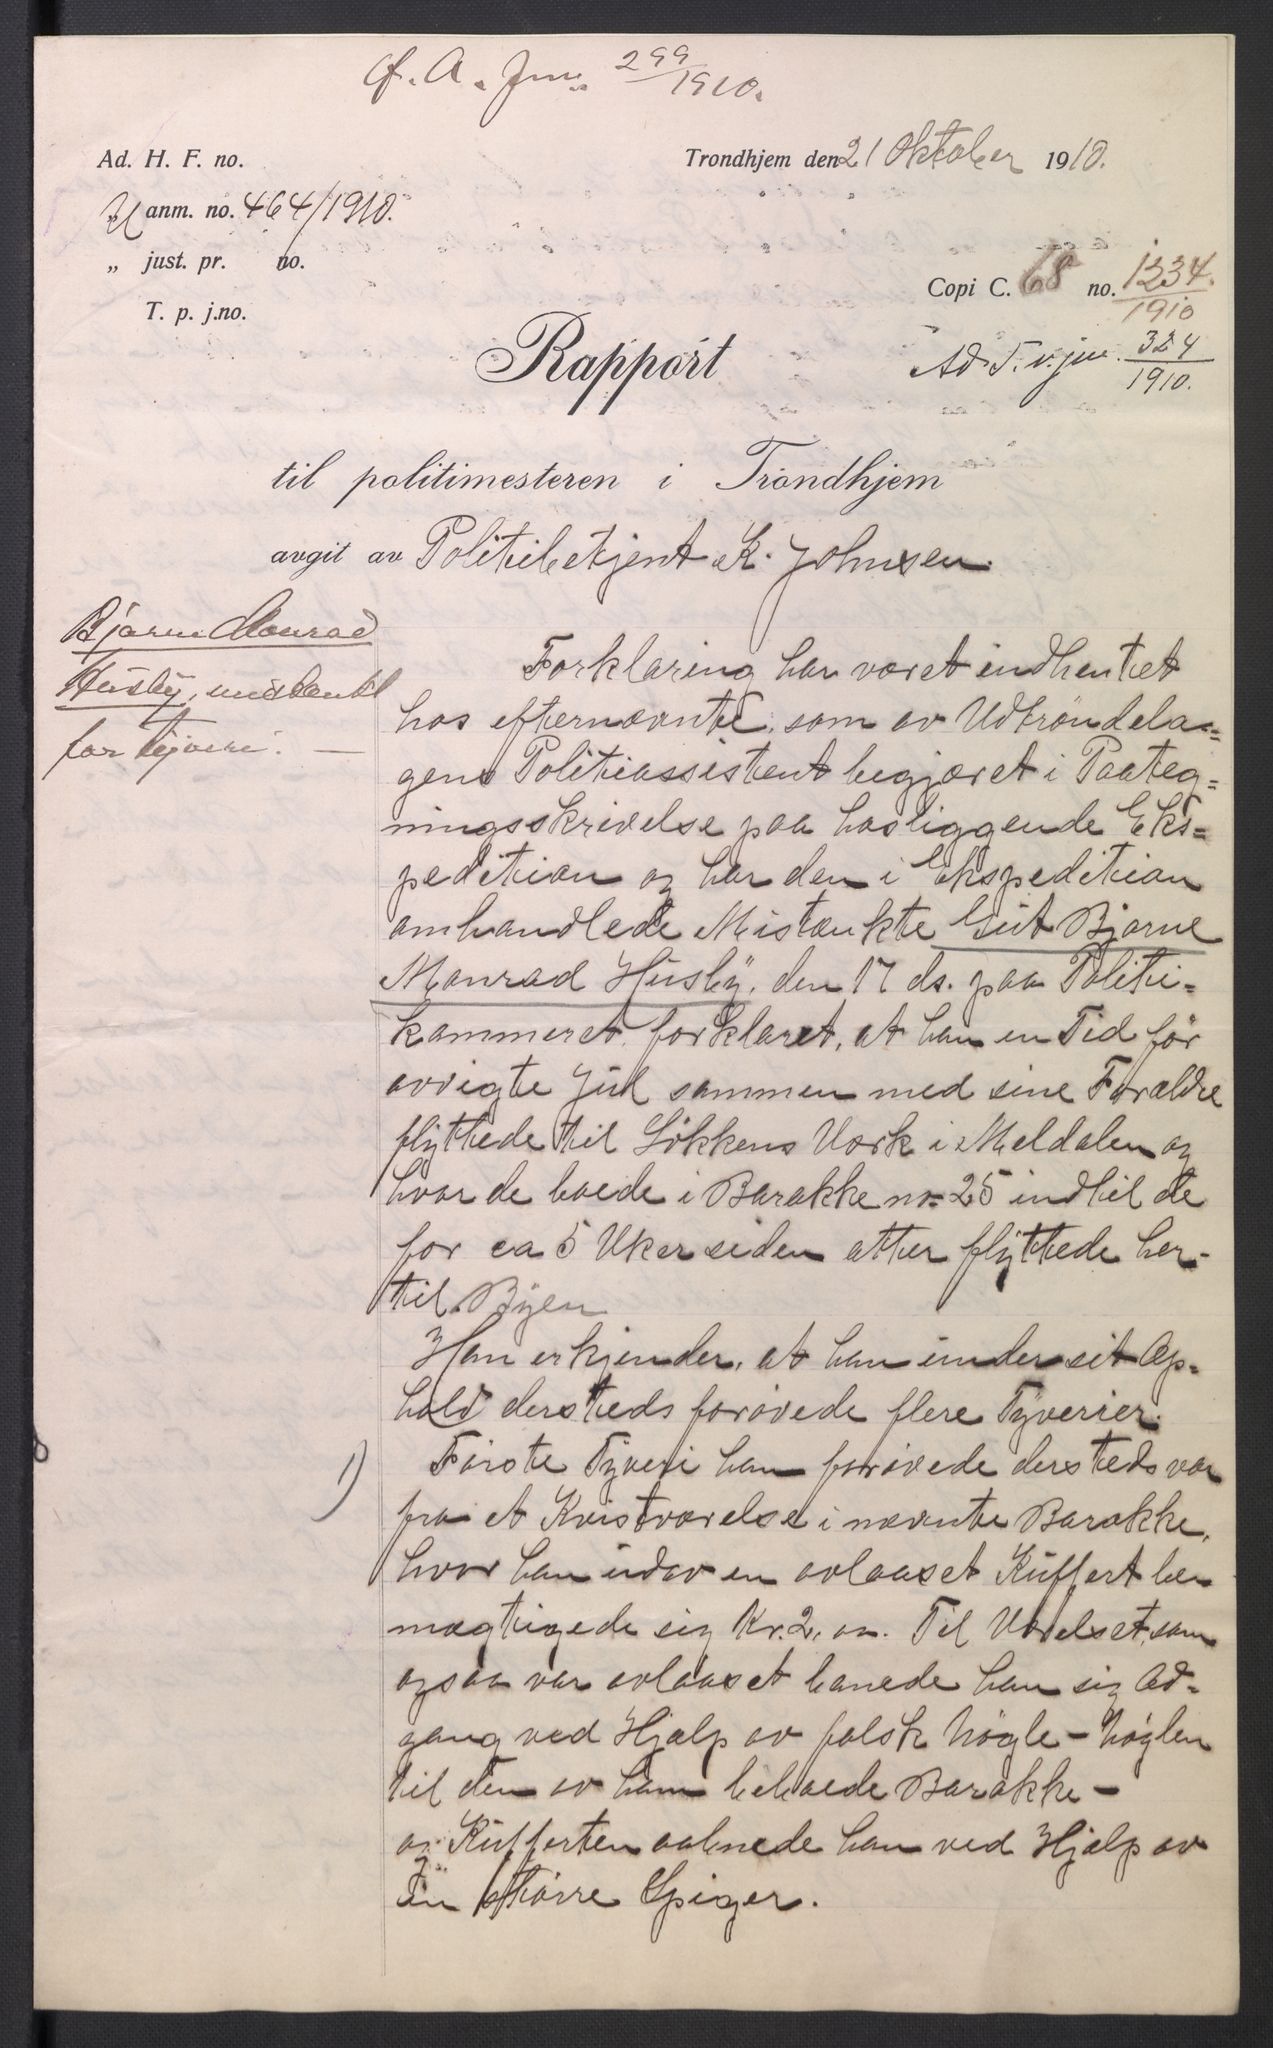 cf. A. Jnr. 299/1910.
Ad. H. F. no.
Trondhjem den 21 Oktober 1910.
U anm. no. 464/1910.
„ just. pr. no.
Copi C. 68 no. 1334/1910
T. p. j.no.
Rapport
Ad. T. v. jnr. 324/1910.
til politimesteren i Trondhjem
avgit av Politibetjent K. Johnsen.
Bjarne Monrad
Husby, mistænkt
for tyveri. —
Forklaring har været indhentet
hos efternævnte, som av Utröndela=
gens Politiassistent begjæret i Paateg=
ningsskrivelse paa hosliggende Eks=
pedition og har den i Ekspedition
omhandlede Mistænkte Gut Bjarne
Monrad Husby, den 17 ds. paa Politi=
kammeret forklaret, at han en Tid för
avvigte Jul sammen med sine Forældre
flyttede til Lökkens Værk i Meldalen og
hvor de boede i Barakke no. 25 indtil de
for ca 5 Uker siden atter flyttede her-
til Byen
Han erkjender, at han under sit Op=
hold dersteds forövede flere Tyverier.
1) Förste Tyveri han forövede dersteds var
fra et Kvistværelse i nævnte Barakke,
hvor han utav en avlaaset Kuffert be
mægtigede sig Kr. 2,00. Til Værelset, som
ogsaa var avlaaset banede han sig Ad=
gang ved Hjælp av falsk Nögle – Nöglen
til den av ham beboede Barakke –
og Kufferten aabnede han ved Hjælp av
en större Spiger.